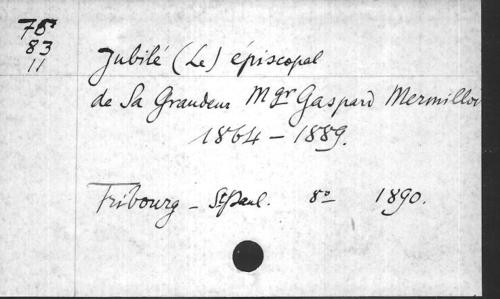 78
83
11
Jubilé (Le) épiscopal
de Sa Grandeur Mgr Gaspard Mermillod
1864 - 1889.
Fribourg - St Paul. 8° 1890.